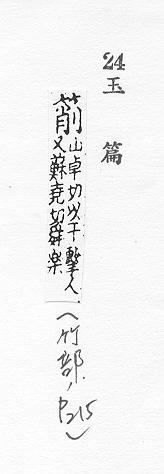 24
玉篇
箾山卓切以干擊人
又蘇堯切舞樂
(竹部, P215)